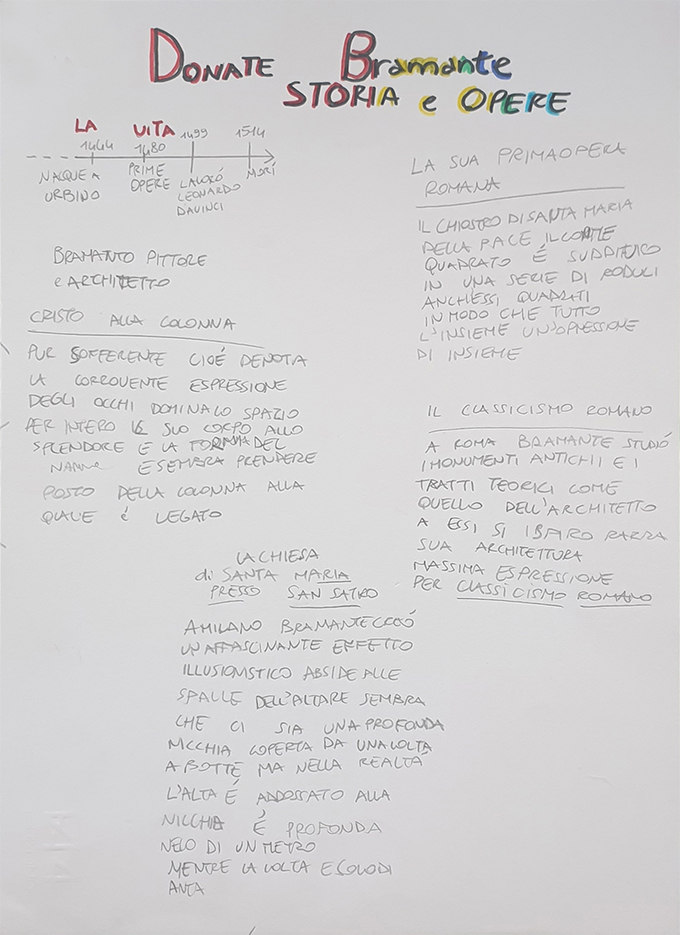 DONATE Bramante
STORIA e OPERE
LA VITA
1444 1480 1499 1514
NACQUE A URBINO
PRIME OPERE
LAVORÓ LEONARDO DAVINCI
MORÍ
BRAMANTO PITTORE
e ARCHITETTO
CRISTO ALLA COLONNA
PUR SOFFERENTE CIOÉ DENOTA
LA ESPRESSIONE
DEGLI OCCHI DOMINA LO SPAZIO
PER INTERO IL SUO CORPO ALLO
SPLENDORE E LA DEL
E SEMBRA PRENDERE
POSTO DELLA COLONNA ALLA
QUALE É LEGATO
LA SUA PRIMA OPERA
ROMANA
IL CHIOSTRO DI SANTA MARIA
DELLA PACE IL
QUADRATO É
IN UNA SERIE DI
ANCHESSI QUADRATI
IN MODO CHE TUTTO
L'INSIEME
DI INSIEME
IL CLASSICISMO ROMANO
A ROMA BRAMANTE STUDIÓ
I MONUMENTI ANTICHI E I
TRATTI TEORICI COME
QUELLO DELL'ARCHITETTO
A ESSI SI
SUA ARCHITETTURA
MASSIMA ESPRESSIONE
PER CLASSICISMO ROMANO
LA CHIESA
di SANTA MARIA
PRESSO SAN SATRO
A MILANO BRAMANTE CREÓ
UN AFFASCINANTE EFFETTO
ILLUSIONISTICO ABSIDE ALLE
SPALLE DELL'ALTARE SEMBRA
CHE CI SIA UNA PROFONDA
NICCHIA COPERTA DA UNA VOLTA
A BOTTE MA NELLA REALTÁ
L'ALTA É ADDOSSATO ALLA
NICCHIA É PROFONDA
DI UN METRO
MENTRE LA VOLTA E SOLO DI
ANTA